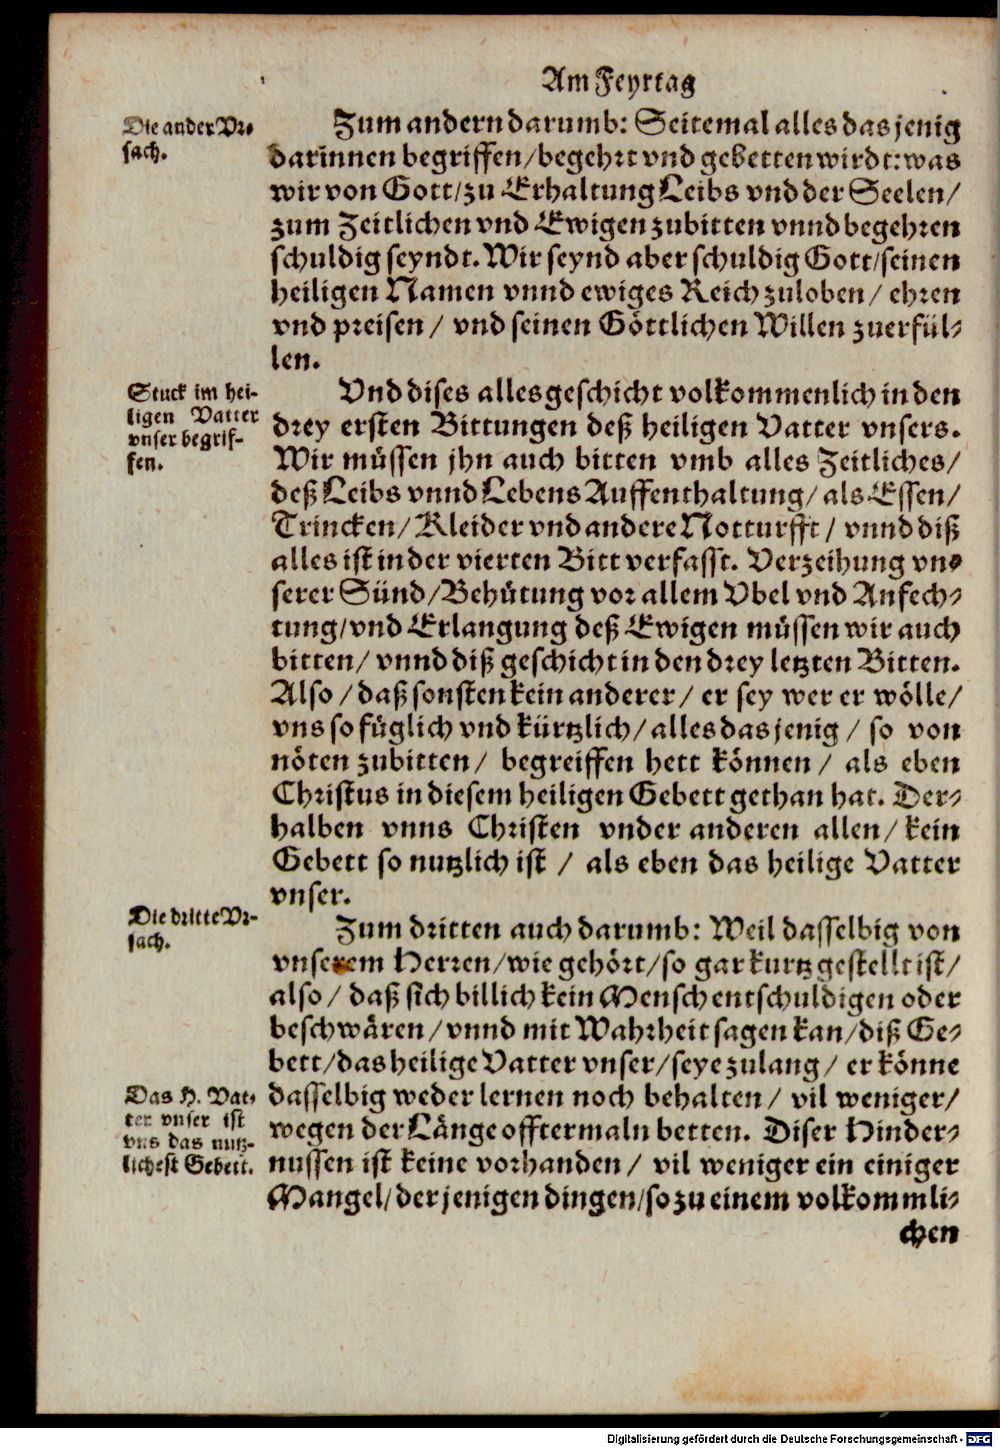 Am Feyrtag
Die ander Vr-
sach.
Zum andern darumb: Seitemal alles das jenig
darinnen begriffen/begehrt vnd gebetten wirdt: was
wir von Gott/zu Erhaltung Leibs vnd der Seelen/
zum Zeitlichen vnd Ewigen zubitten vnnd begehren
schuldig seyndt. Wir seynd aber schuldig Gott/seinen
heiligen Namen vnnd ewiges Reich zuloben/ ehren
vnd preisen/ vnd seinen Göttlichen Willen zuerfül-
len.
Stuck im hei-
ligen Vatter
vnser begrif-
fen.
Vnd dises alles geschicht volkommenlich in den
drey ersten Bittungen deß heiligen Vatter vnsers.
Wir müssen jhn auch bitten vmb alles Zeitliches/
deß Leibs vnnd Lebens Auffenthaltung/ als Essen/
Trincken/ Kleider vnd andere Notturfft/ vnnd diß
alles ist in der vierten Bitt verfasst. Verzeihung vn-
serer Sünd/Behütung vor allem Vbel vnd Anfech-
tung/vnd Erlangung deß Ewigen müssen wir auch
bitten/ vnnd diß geschicht in den drey letzten Bitten.
Also/ daß sonsten kein anderer/ er sey wer er wölle/
vns so füglich vnd kürtzlich/ alles das jenig/ so von
nöten zubitten/ begreiffen hett können/ als eben
Christus in diesem heiligen Gebett gethan hat. Der-
halben vnns Christen vnder anderen allen/ kein
Gebett so nutzlich ist/ als eben das heilige Vatter
vnser.
Die dritte Vr-
sach.
Zum dritten auch darumb: Weil dasselbig von
vnserem Herren/wie gehört/so gar kurtz gestellt ist/
also/ daß sich billich kein Mensch entschuldigen oder
beschwären/ vnnd mit Wahrheit sagen kan/diß Ge-
bett/das heilige Vatter vnser/seye zulang/ er könne
Das H. Vat-
ter vnser ist
vns das nutz-
lichest Gebett.
dasselbig weder lernen noch behalten/ vil weniger/
wegen der Länge offtermaln betten. Diser Hinder-
nussen ist keine vorhanden/ vil weniger ein einiger
Mangel/der jenigen dingen/so zu einem volkommli-
chen
Digitalisierung gefördert durch die Deutsche Forschungsgemeinschaft - DFG